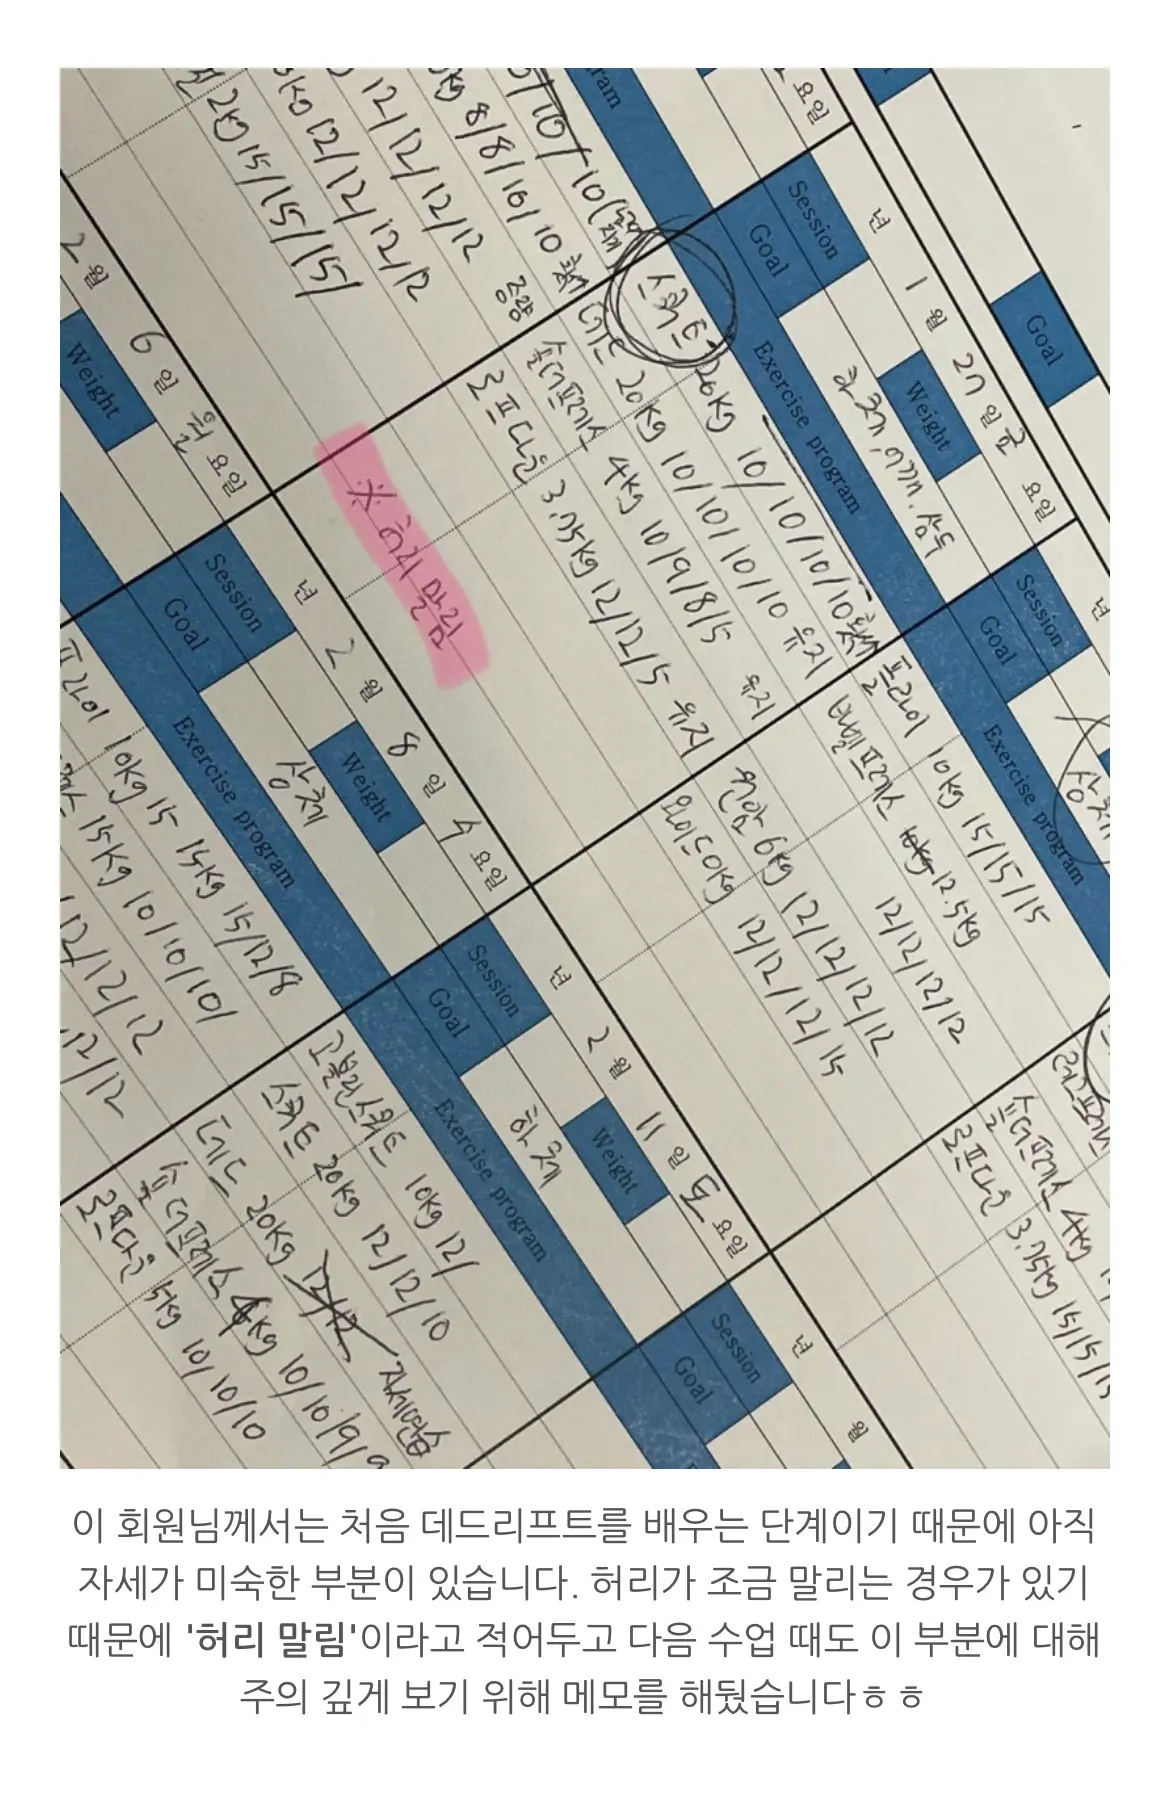 2kg 15/15/15/
12/12/12/12
8/8/10/10
중량
년 1월 27일 금요일
Session
Weight
Goal
하체, 어깨, 삼두
Exercise program
스쿼트 20kg 10/10/10/10
데드 20kg 10/10/10/10 유지
숄더프레스 4kg 10/9/8/5 유지
로프다운 3.75kg 12/12/5 유지
※ 허리 말림
Goal
요일
년
Session
Goal
상체
Exercise program
플라이 10kg 15/15/15
벤치프레스 10kg 12.5kg
12/12/12/12
원암 6kg 12/12/12/12
와이드 0kg 12/12/12/15
숄더프레스 4kg
로프다운 3.75kg 15/15/15
2월 6일 월요일
Weight
년 2월 8일 수요일
Session
Weight
Goal
상체
Exercise program
플라이 10kg 15 15kg 15/12/8
15kg 10/10/10/
12/12/12
12/12
년 2월 11일 토요일
Session
Weight
Goal
하체
Exercise program
고블린스쿼트 10kg 12/
스쿼트 20kg 12/12/10
데드 20kg 12/12 자세연습
숄더프레스 4kg 10/10/9/9
로프다운 5kg 10/10/10
년 월
Session
Goal
이 회원님께서는 처음 데드리프트를 배우는 단계이기 때문에 아직
자세가 미숙한 부분이 있습니다. 허리가 조금 말리는 경우가 있기
때문에 '허리 말림'이라고 적어두고 다음 수업 때도 이 부분에 대해
주의 깊게 보기 위해 메모를 해뒀습니다ㅎㅎ